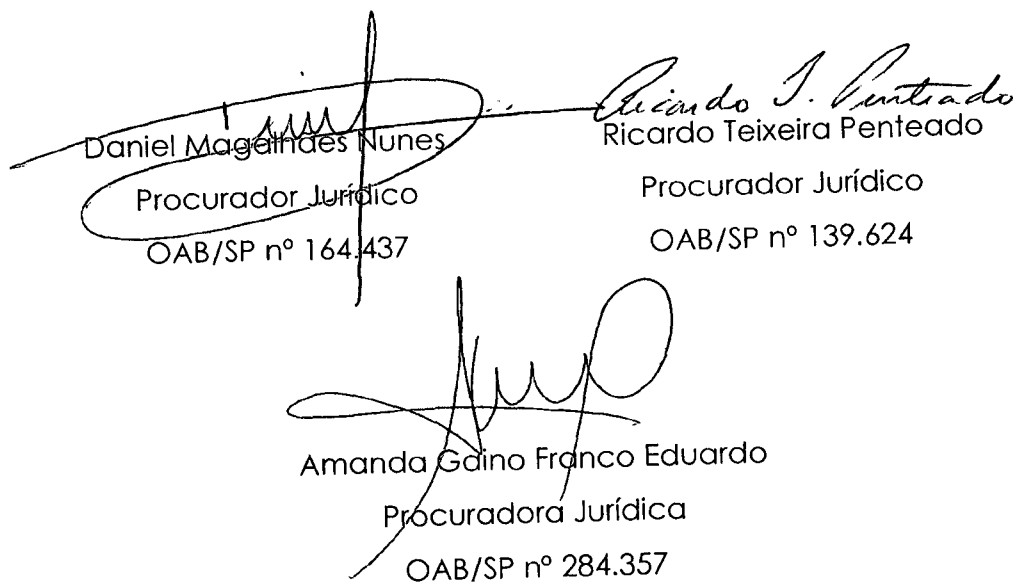 Daniel Magalhães Nunes
Procurador Jurídico
OAB/SP nº 164.437
Ricardo T. Penteado
Ricardo Teixeira Penteado
Procurador Jurídico
OAB/SP nº 139.624
Amanda Gaino Franco Eduardo
Procuradora Jurídica
OAB/SP nº 284.357